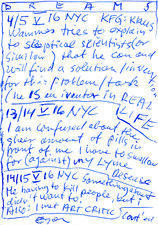 D R E A M S
4/5 V 16 NYC KFG: Klaus
Wümmes trees to explain
to skeptical scientists (or
similar) that he can and
will find a solution/inven
for this problem/task
(he IS an inventor in REAL
13/14 V 16 NYC LIFE
I am confused about the
sheer amount of pills in
front of me I have to swallow
for (against) my Lyme
Desease
14/15 V 16 NYC Something about
He having to kill people, but I
didn't want to!
Also: I met ART CRITIC